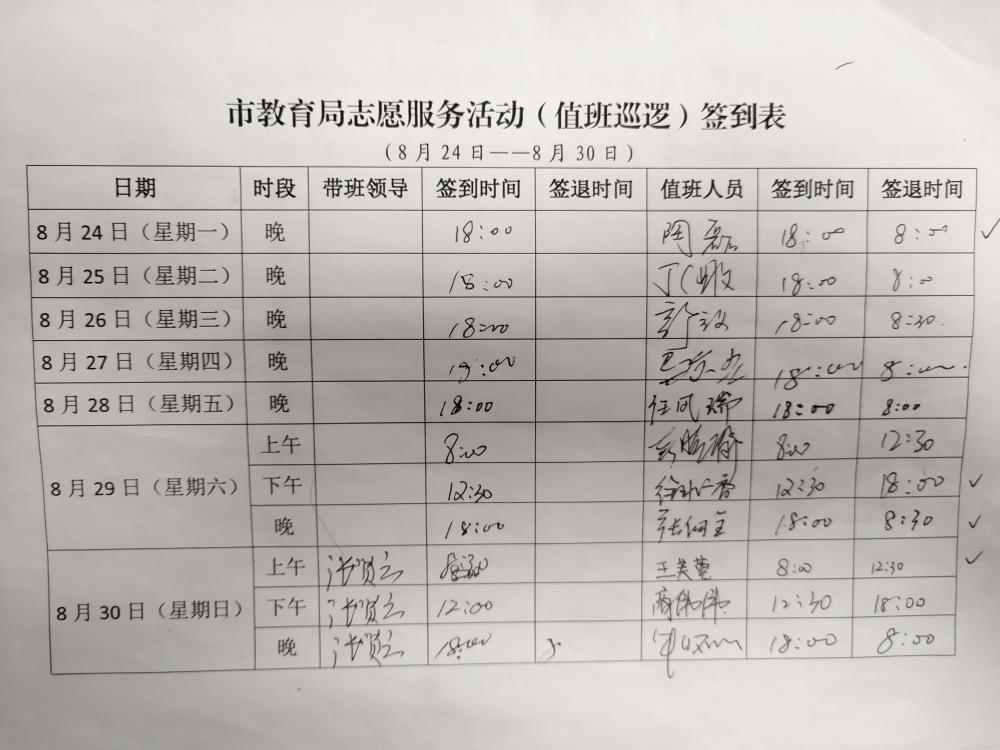 市教育局志愿服务活动（值班巡逻）签到表
（8月24日——8月30日）
日期 时段 带班领导 签到时间 签退时间 值班人员 签到时间 签退时间
8月24日（星期一） 晚 18:00 陶磊 18:00 8:00
8月25日（星期二） 晚 18:00 18:00 8:00
8月26日（星期三） 晚 18:00 18:00 8:30
8月27日（星期四） 晚 18:00 18:00 8:00
8月28日（星期五） 晚 18:00 任凤瑞 18:00 8:00
8月29日（星期六） 上午 8:00 8:00 12:30
下午 12:30 12:30 18:00
晚 18:00 18:00 8:30
8月30日（星期日） 上午 8:30 王芙蓉 8:00 12:30
下午 12:00 商伟伟 12:30 18:00
晚 18:00 18:00 8:00